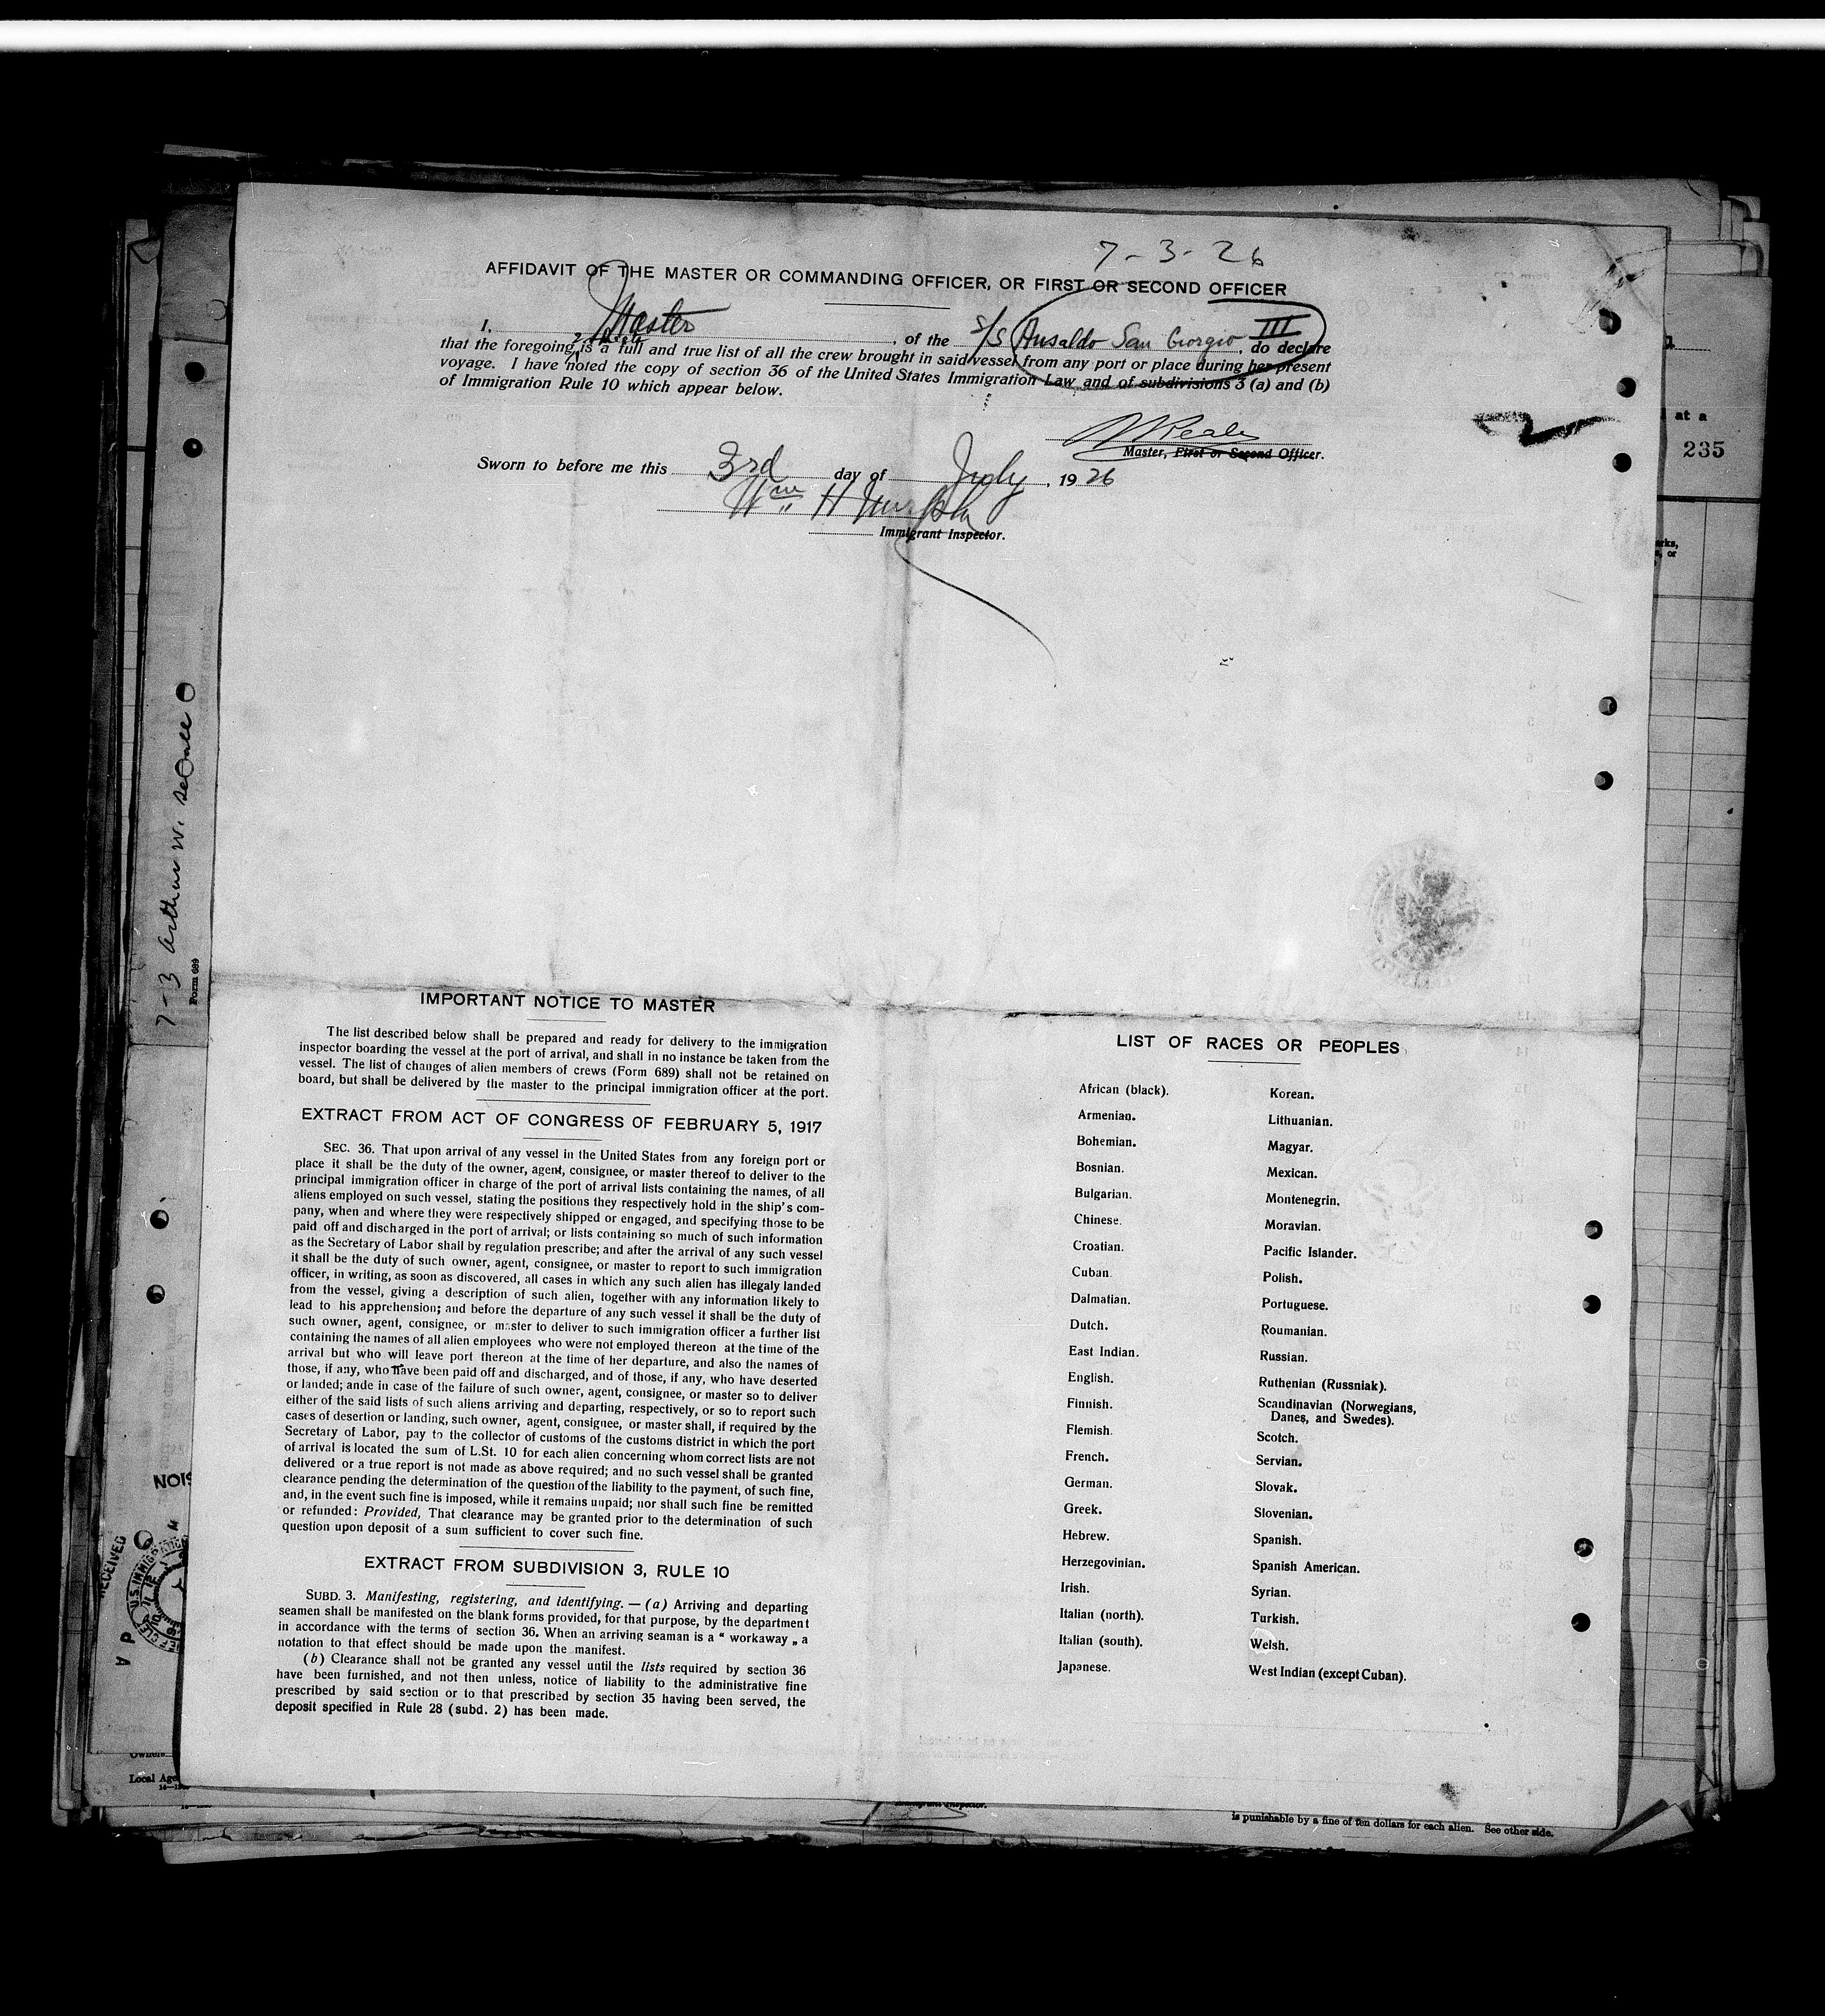 7-3-26
AFFIDAVIT OF THE MASTER OR COMMANDING OFFICER, OR FIRST OR SECOND OFFICER
I, Master, of the S/S Ansaldo San Giorgio III, do declare
that the foregoing is a full and true list of all the crew brought in said vessel from any port or place during her present
voyage. I have noted the copy of section 36 of the United States Immigration Law and of subdivisions 3 (a) and (b)
of Immigration Rule 10 which appear below.
Master, First or Second Officer.
Sworn to before me this 3rd day of July, 1926
Wm H Murphy
Immigrant Inspector.
at a
235
7-3 Arthur W. Sewall
Form 689
IMPORTANT NOTICE TO MASTER
The list described below shall be prepared and ready for delivery to the immigration
inspector boarding the vessel at the port of arrival, and shall in no instance be taken from the
vessel. The list of changes of alien members of crews (Form 689) shall not be retained on
board, but shall be delivered by the master to the principal immigration officer at the port.
EXTRACT FROM ACT OF CONGRESS OF FEBRUARY 5, 1917
SEC. 36. That upon arrival of any vessel in the United States from any foreign port or
place it shall be the duty of the owner, agent, consignee, or master thereof to deliver to the
principal immigration officer in charge of the port of arrival lists containing the names, of all
aliens employed on such vessel, stating the positions they respectively hold in the ship's com-
pany, when and where they were respectively shipped or engaged, and specifying those to be
paid off and discharged in the port of arrival; or lists containing so much of such information
as the Secretary of Labor shall by regulation prescribe; and after the arrival of any such vessel
it shall be the duty of such owner, agent, consignee, or master to report to such immigration
officer, in writing, as soon as discovered, all cases in which any such alien has illegaly landed
from the vessel, giving a description of such alien, together with any information likely to
lead to his apprehension; and before the departure of any such vessel it shall be the duty of
such owner, agent, consignee, or master to deliver to such immigration officer a further list
containing the names of all alien employees who were not employed thereon at the time of the
arrival but who will leave port thereon at the time of her departure, and also the names of
those, if any, who have been paid off and discharged, and of those, if any, who have deserted
or landed; ande in case of the failure of such owner, agent, consignee, or master so to deliver
either of the said lists of such aliens arriving and departing, respectively, or so to report such
cases of desertion or landing, such owner, agent, consignee, or master shall, if required by the
Secretary of Labor, pay to the collector of customs of the customs district in which the port
of arrival is located the sum of L.St. 10 for each alien concerning whom correct lists are not
delivered or a true report is not made as above required; and no such vessel shall be granted
clearance pending the determination of the question of the liability to the payment, of such fine,
and, in the event such fine is imposed, while it remains unpaid; nor shall such fine be remitted
or refunded: Provided, That clearance may be granted prior to the determination of such
question upon deposit of a sum sufficient to cover such fine.
EXTRACT FROM SUBDIVISION 3, RULE 10
SUBD. 3. Manifesting, registering, and identifying. — (a) Arriving and departing
seamen shall be manifested on the blank forms provided, for that purpose, by the department
in accordance with the terms of section 36. When an arriving seaman is a “ workaway „ a
notation to that effect should be made upon the manifest.
(b) Clearance shall not be granted any vessel until the lists required by section 36
have been furnished, and not then unless, notice of liability to the administrative fine
prescribed by said section or to that prescribed by section 35 having been served, the
deposit specified in Rule 28 (subd. 2) has been made.
LIST OF RACES OR PEOPLES
African (black).
Armenian.
Bohemian.
Bosnian.
Bulgarian.
Chinese.
Croatian.
Cuban.
Dalmatian.
Dutch.
East Indian.
English.
Finnish.
Flemish.
French.
German.
Greek.
Hebrew.
Herzegovinian.
Irish.
Italian (north).
Italian (south).
Japanese.
Korean.
Lithuanian.
Magyar.
Mexican.
Montenegrin.
Moravian.
Pacific Islander.
Polish.
Portuguese.
Roumanian.
Russian.
Ruthenian (Russniak).
Scandinavian (Norwegians,
Danes, and Swedes).
Scotch.
Servian.
Slovak.
Slovenian.
Spanish.
Spanish American.
Syrian.
Turkish.
Welsh.
West Indian (except Cuban).
RECEIVED
Owners
Local Age
Immigrant Inspector.
is punishable by a fine of ten dollars for each alien. See other side.